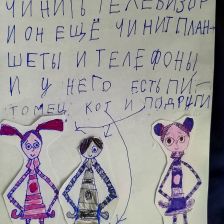 ЧИНИТЬ ТЕЛЕВИЗОР
И ОН ЕЩЁ ЧИНИТ ПЛАН-
ШЕТЫ И ТЕЛЕФОНЫ
И У НЕГО ЕСТЬ ПИ-
ТОМЕЦ КОТ И ПОДРУГИ